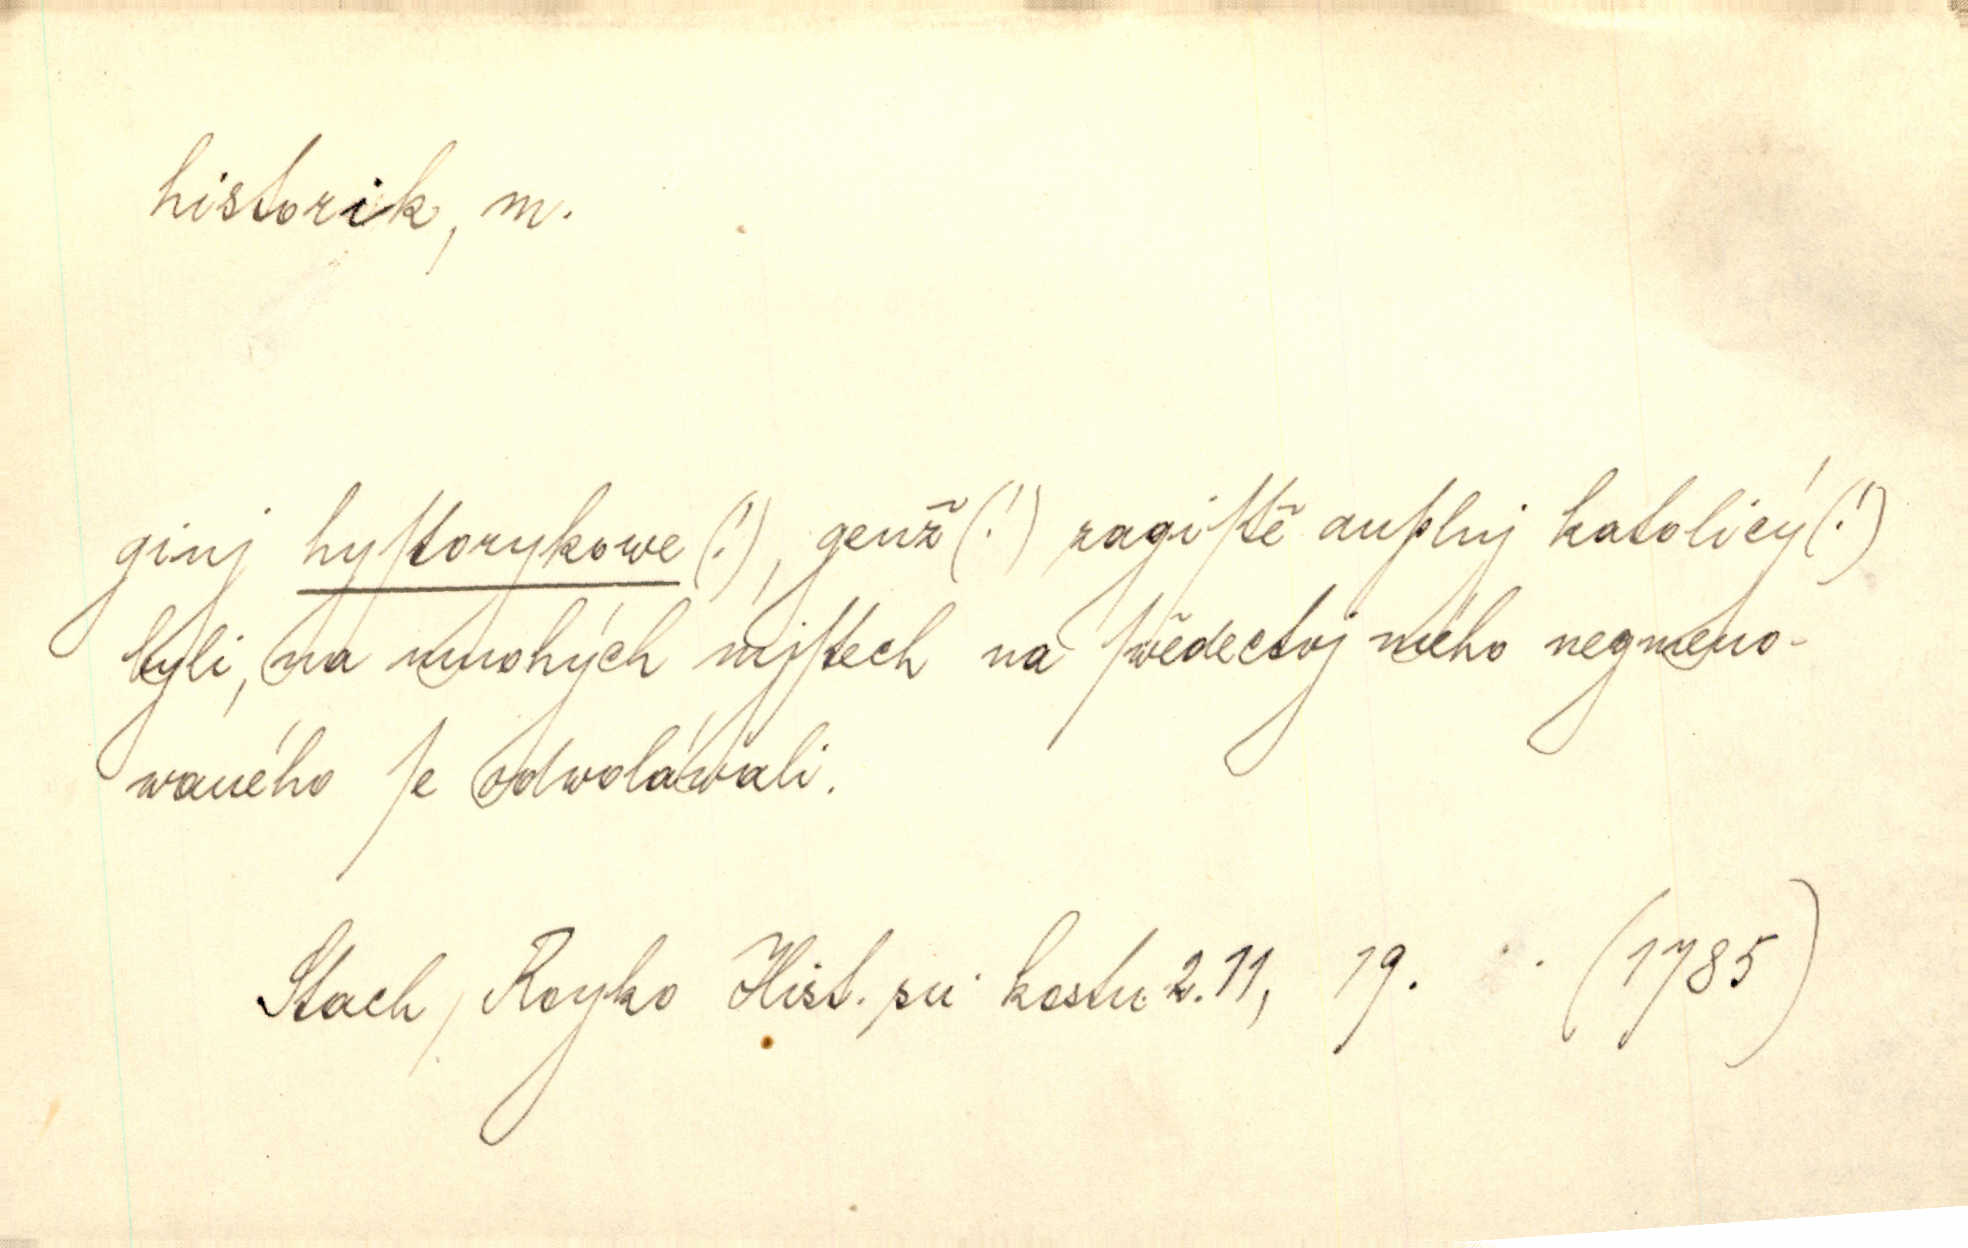 historik, m.
ginj hyſtorykowe (!), genž (!) zagiſtě auplnj katolicý (!)
byli, na mnohých mjſtech na ſwědectwj mého negmeno-
waného ſe odwoláwali.
Stach, Royko Hist. sn. kostn. 2.11, 19. (1785)